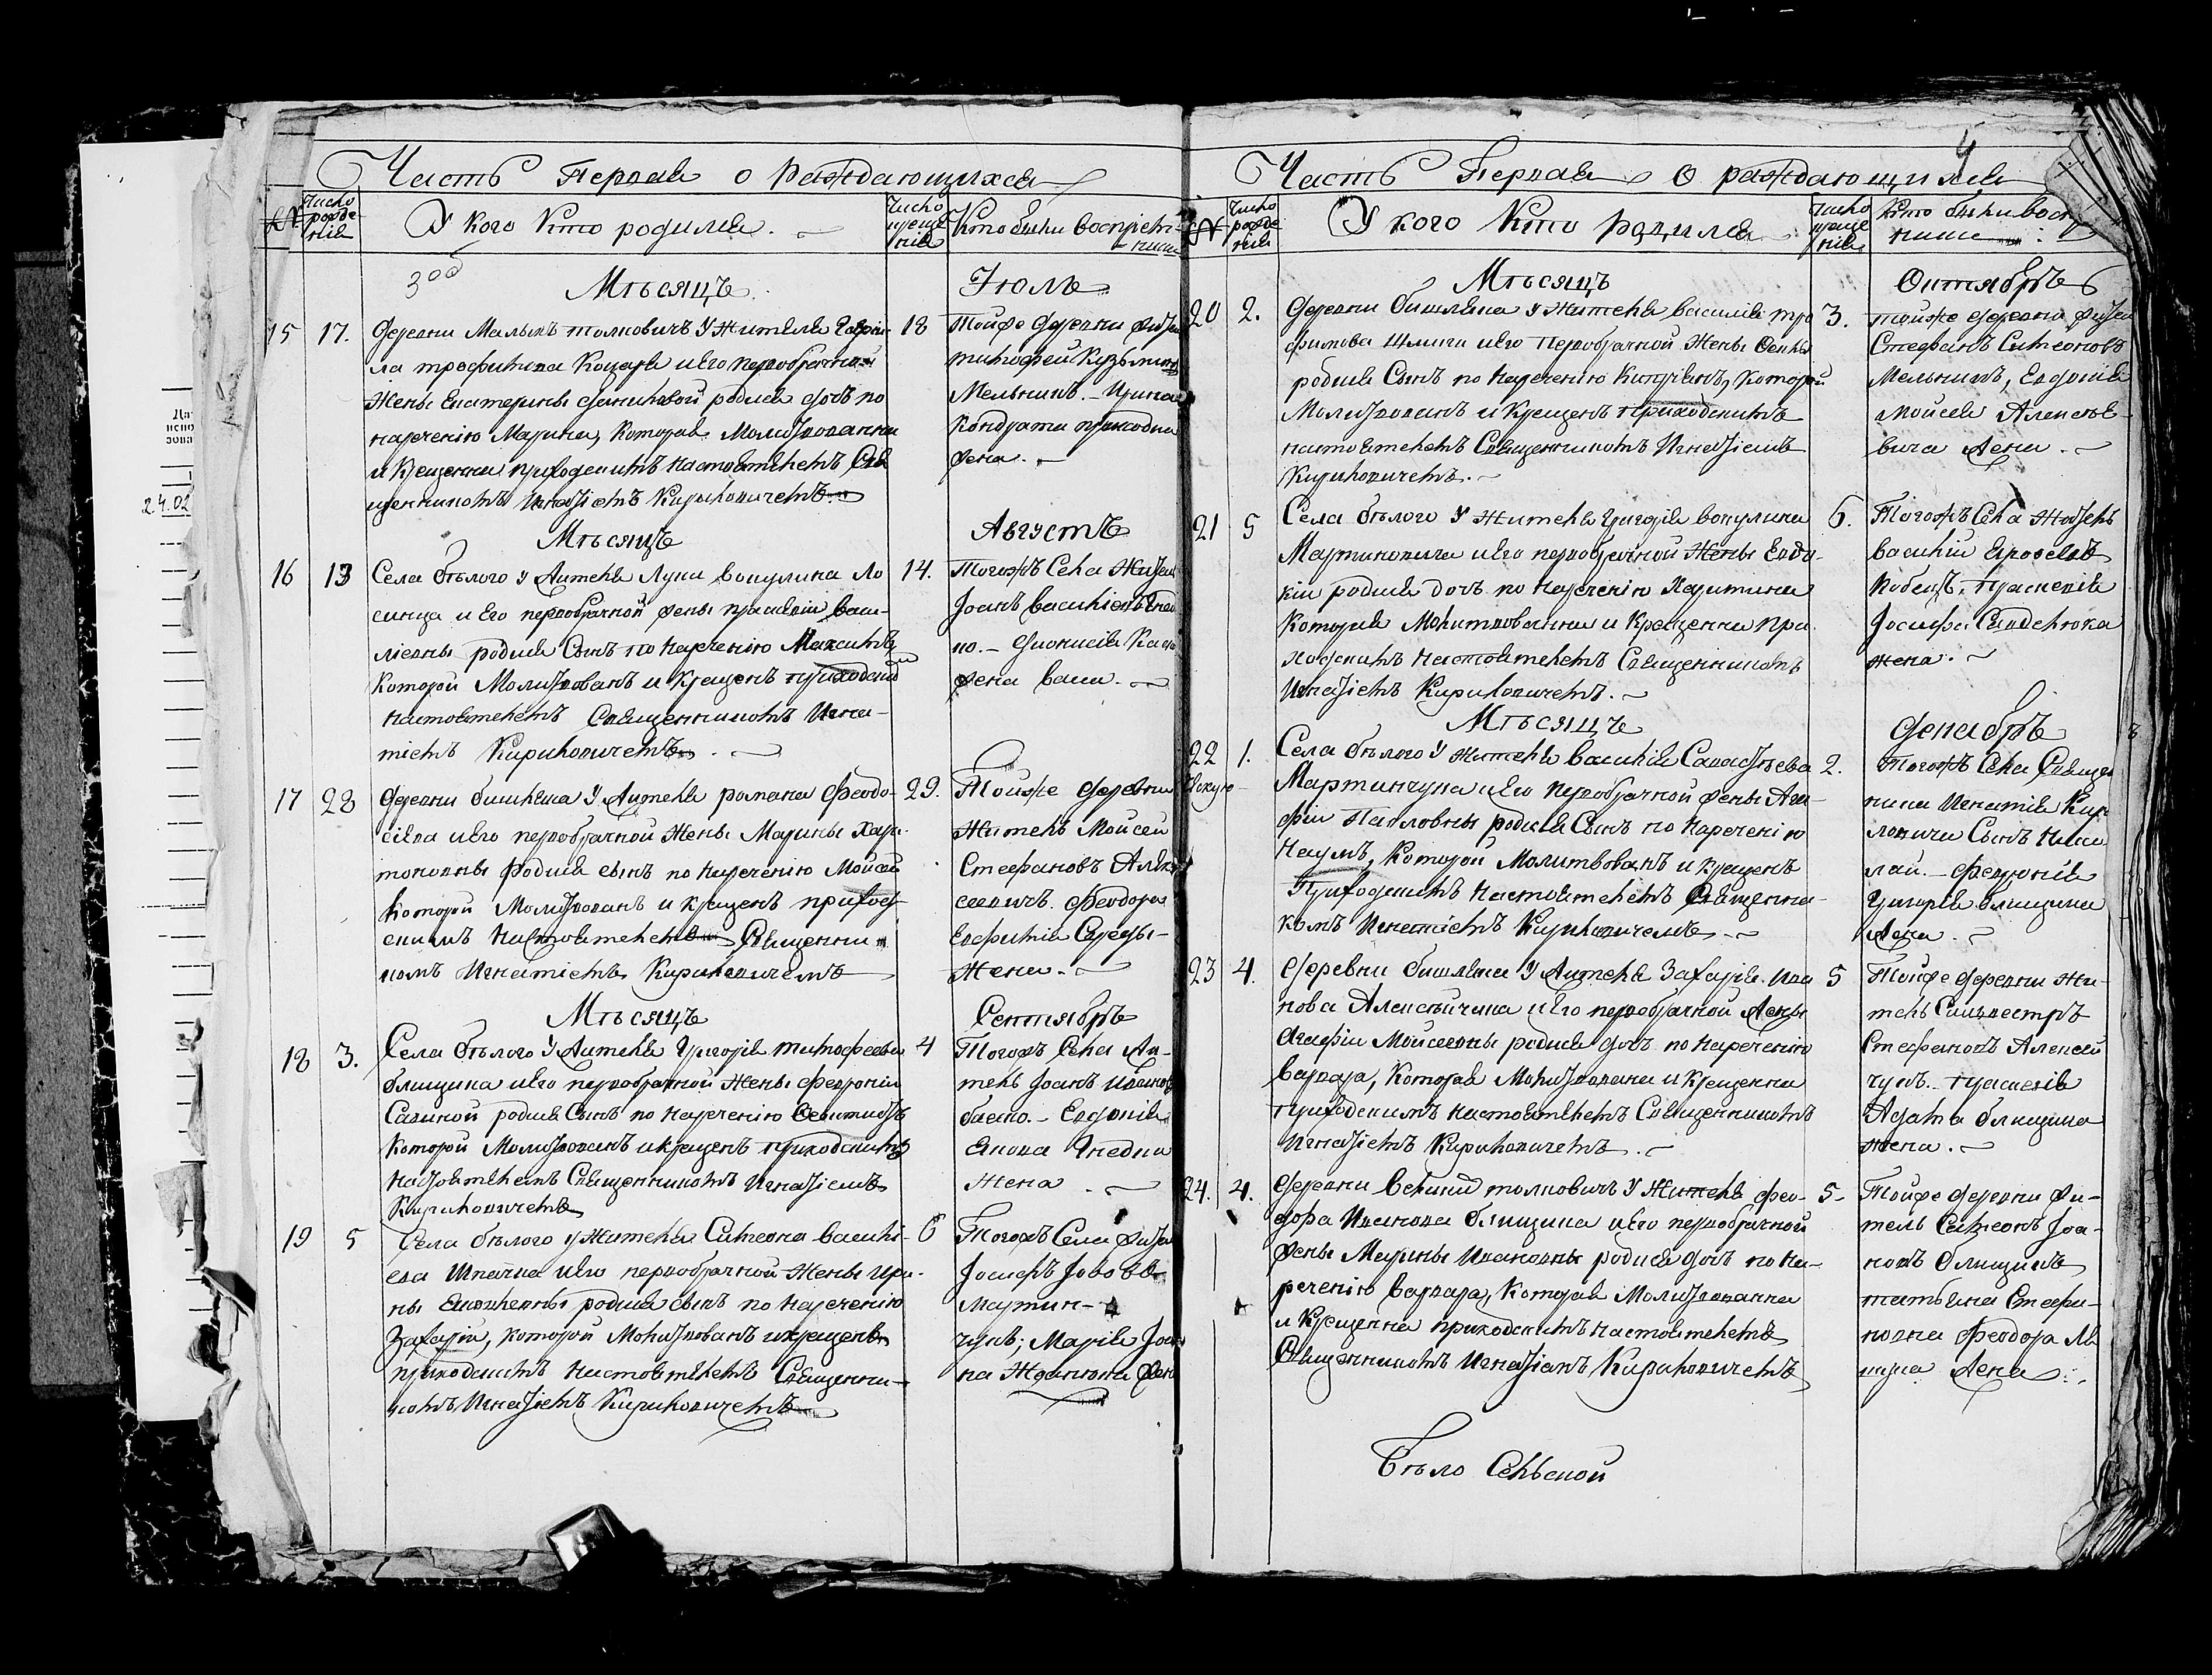 Часть Первая о раждающихся
№
Число рожде нія
У кого Кто родился.
Число креще нія
Кто были воспріем-
ники
3об
Мѣсяцъ Іюль
15 17. Деревни Малыхъ толковичъ У Жителя Гаври-
ла трофимова Коцаря и Его первобрачной
Жены Екатерины родися дочь по
нареченію Марина, Которая Молитвованна
и Крещенна приходскимъ настоятелемъ Свя
щенникомъ Игнатіемъ Кириловичемъ
18 Тойже Деревни жител
тимофей Кузьминъ
Мельникъ. Ирина
Кондрата приходка
жена.
Мѣсяцъ Августъ
16 13 Села бѣлого у Жителя Луки вокулина Ло
синца и Его первобрачной жены праскевіи васи-
ліевны родися Сынъ по нареченію Максимъ
Которой Молитвованъ и Крещенъ приходским
настоятелемъ Священникомъ Игна-
тіемъ Кириловичемъ
14. Тогожъ Села Жител
Іоанъ василіевъ
ко. Діонисія
жена васи.
17 28 Деревни бишляка У Жителя романа Феодо-
сіева и Его первобрачной Жены Марины Хари-
тоновны родися сынъ по нареченію Мойсей
Которой Молитвованъ и крещенъ приход-
скимъ настоятелемъ Священни
комъ Игнатіемъ Кириловичемъ
29. Тойже Деревни
Житель Мойсей
Стефановъ Алек
сеевичъ. Феодора
Евфимія Середы-
Жена.
Мѣсяцъ Сентябрь
18 3. Села бѣлого У Жителя Григорія тимофеева
блищика и Его первобрачной Жены февроніи
Савиной родися Сынъ по нареченію
Которой Молитвованъ и крещенъ приходскимъ
Настоятелемъ Священникомъ Игнатіемъ
Кириловичемъ
4 Тогожъ Села Жи-
тель Іоанъ Ивановъ
Евдокія
Якова Гнедка
Жена
19 5 Села бѣлого у Жителя Симеона василі-
ева Шпака и Его первобрачной Жены Ири-
ны родися сынъ по нареченію
Захарій, которой Молитвованъ и крещенъ
приходскимъ настоятелемъ Священни-
комъ Игнатіемъ Кириловичемъ
6 Тогожъ Села Жител
Іосифъ Іововъ
Мартин-
чукъ; Марія Іоа
на Жданюка Жена
4
Часть Первая о раждающихся
№
Число рожде нія
У кого Кто Родился
Число креще нія
Кто были воспр
ники
Мѣсяцъ Октябрь
20 2. Деревни бишляка у Жителя василія тро
фимова и Его Первобрачной Жены
родися Сынъ по нареченію Которой
Молитвованъ и Крещенъ приходскимъ
настоятелемъ Священникомъ Игнатіемъ
Кириловичемъ.
3. тойже деревни жител
Стефанъ Симеоновъ
Мельникъ, Евдокія
Мойсея Алексѣе
вича Жена.
21 5 Села бѣлого У Жителя Григорія вокулина
Мартиновича и Его первобрачной Жены Евдо-
кіи родися дочь по нареченію Харитина
Которая Молитвованна и Крещенна при
ходскимъ Настоятелемъ Священникомъ
Игнатіемъ Кириловичемъ.
6. Тогожъ Села Житель
василій
праскевія
Іосифа
жена.
Мѣсяцъ Декабрь
22 1. Села бѣлого У Жителя василія Савастѣева
Мартинчука и Его первобрачной жены Ага-
фіи Павловны родися Сынъ по нареченію
Наумъ, Которой Молитвованъ и крещенъ
Приходскимъ Настоятелемъ Священни-
комъ Игнатіемъ Кириловичемъ
2. Тогожъ Села Священ
ника Игнатія Кири
ловича Сынъ Нико
лай. Февронія
Григорія блищика
Жена.
23 4. Деревни бишляка У Жителя Захарія Ива
нова Алексѣйчика и Его первобрачной Жены
Агафіи Мойсеевны родися дочь по нареченію
Варвара, Которая Молитвована и Крещенна
приходскимъ настоятелемъ Священникомъ
Игнатіемъ Кириловичемъ.
5 Тойже деревни Жи-
тель Сильвестръ
Стефановъ Алексей
чукъ. праскевія
Адама блищика
жена.
24. 4. Деревни Великихъ толковичъ У Жителя Фео-
дора Иванова блищика и Его первобрачной
жены Марины Ивановны родися дочь по на-
реченію Варвара, Которая Молитвованна
и Крещенна приходскимъ настоятелемъ
Священникомъ Игнатіемъ Кириловичемъ
5. Тойже деревни жи-
тель Симеонъ Іоа-
новъ блищикъ
татьяна Стефа-
новна Феодора
Жена
Бѣло Сельской